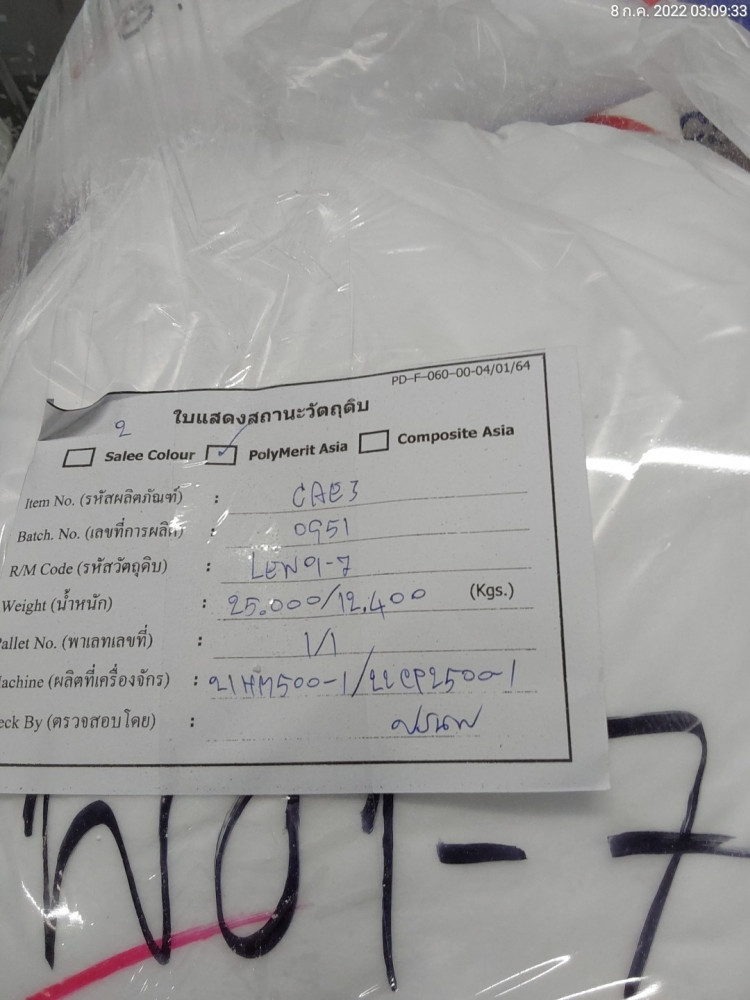 8 ก.ค. 2022 03:09:33
PD-F-060-00-04/01/64
ใบแสดงสถานะวัตถุดิบ
Salee Colour PolyMerit Asia Composite Asia
Item No. (รหัสผลิตภัณฑ์) : CAE3
Batch. No. (เลขที่การผลิต) : 0951
R/M Code (รหัสวัตถุดิบ) : LEN01-7
Weight (น้ำหนัก) : 25.000/12.400 (Kgs.)
Pallet No. (พาเลทเลขที่) : 1/1
Machine (ผลิตที่เครื่องจักร) : 21HM500-1/22CP2500-1
Check By (ตรวจสอบโดย) :
N01-7